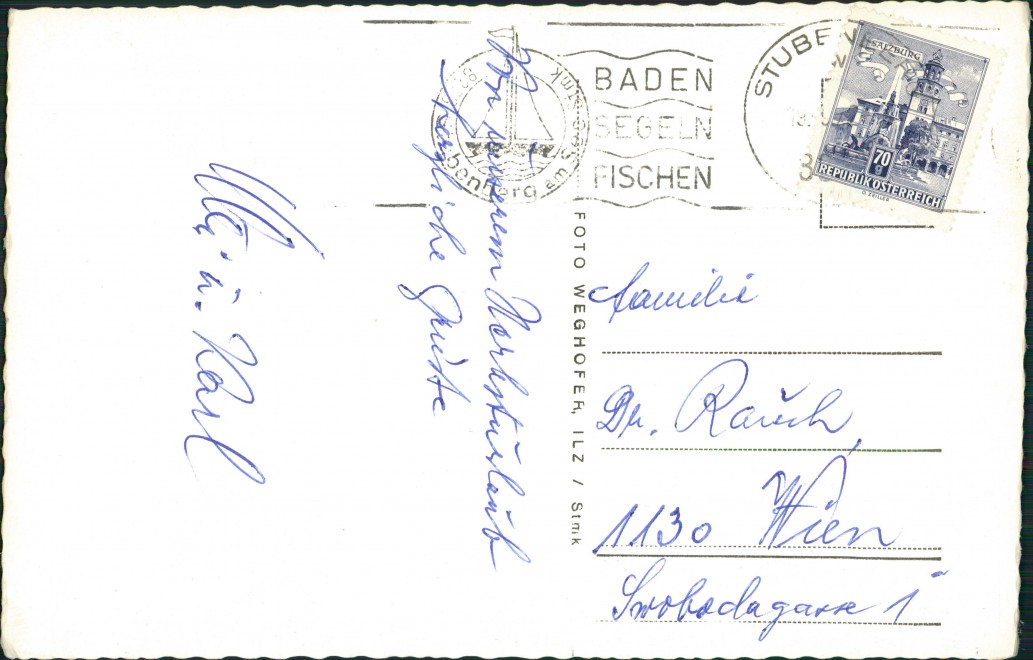 Von unserem Herbsturlaub
herzliche Grüße
u. Karl
BADEN
SEGELN
FISCHEN
STUBENBERG
SALZBURG
70 g
REPUBLIK ÖSTERREICH
FOTO WEGHOFER, ILZ / Stmk
Familie
Dr. Rausch,
1130 Wien
Swobodagasse 1